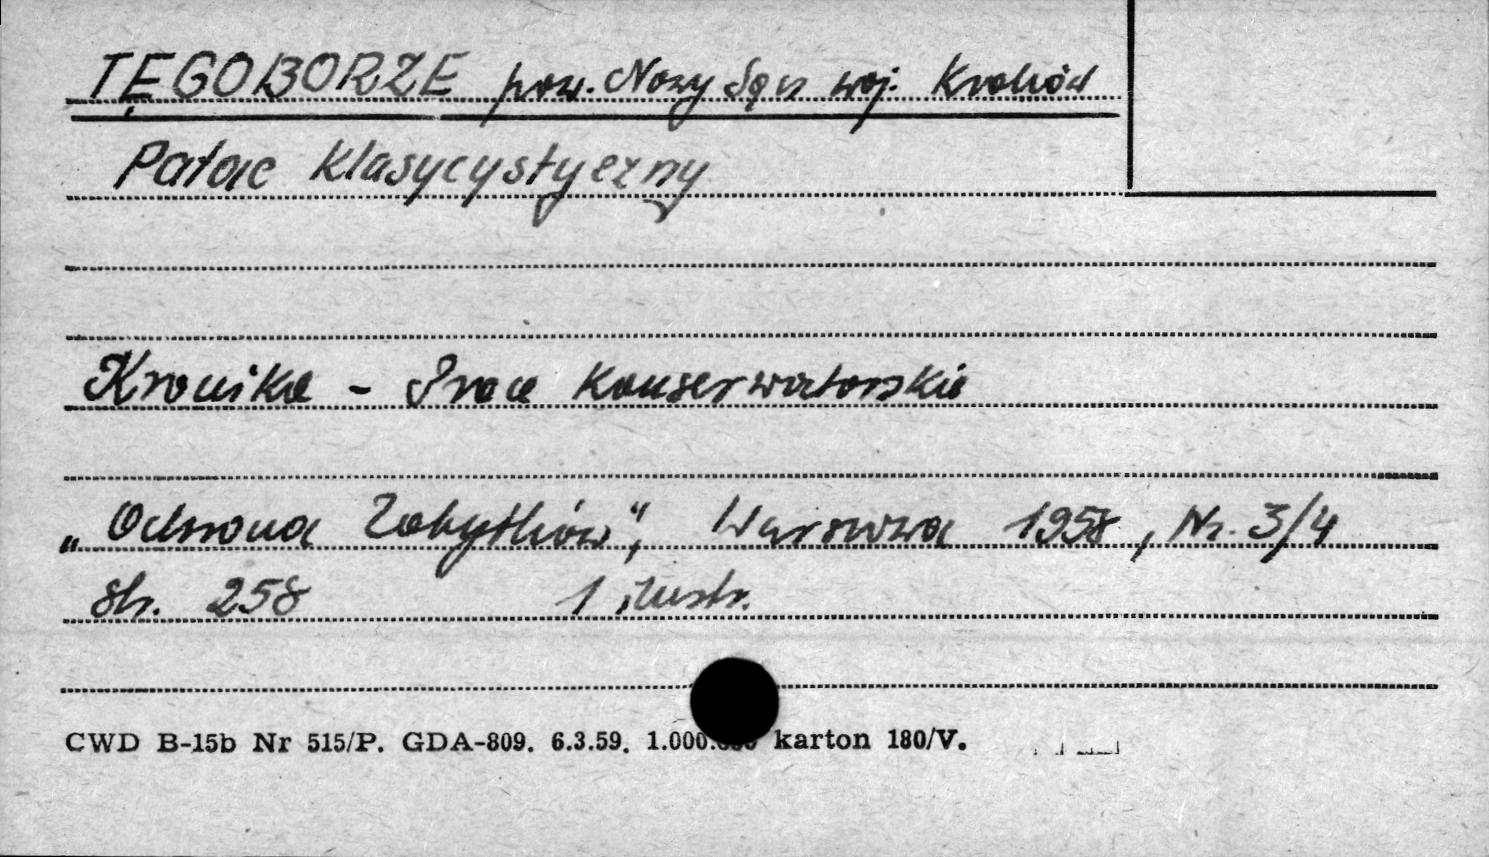 TĘGOBORZE pow. Nowy Sącz woj. Kraków
Pałac klasycystyczny
Kronika - Prace konserwatorskie
„Ochrona Zabytków", Warszawa 1958, Nr. 3/4
str. 258 1 ilustr.
CWD B-15b Nr 515/P. GDA-809. 6.3.59. 1.000.000 karton 180/V.